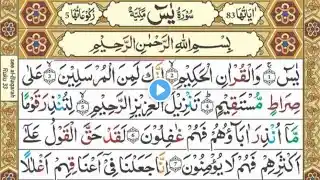 اٰيَاتُهَا 83 سُوْرَةُ يٰسٓ مَكِّيَّةٌ رُكُوْعَاتُهَا 5
بِسْمِ اللّٰهِ الرَّحْمٰنِ الرَّحِيْمِ
يٰسٓ ۝ وَالْقُرْاٰنِ الْحَكِيْمِ ۝ اِنَّكَ لَمِنَ الْمُرْسَلِيْنَ ۝ عَلٰى
صِرَاطٍ مُّسْتَقِيْمٍ ۝ تَنْزِيْلَ الْعَزِيْزِ الرَّحِيْمِ ۝ لِتُنْذِرَ قَوْمًا
مَّا اُنْذِرَ اٰبَآؤُهُمْ فَهُمْ غٰفِلُوْنَ ۝ لَقَدْ حَقَّ الْقَوْلُ عَلٰٓى
اَكْثَرِهِمْ فَهُمْ لَا يُؤْمِنُوْنَ ۝ اِنَّا جَعَلْنَا فِيْٓ اَعْنَاقِهِمْ اَغْلٰلًا